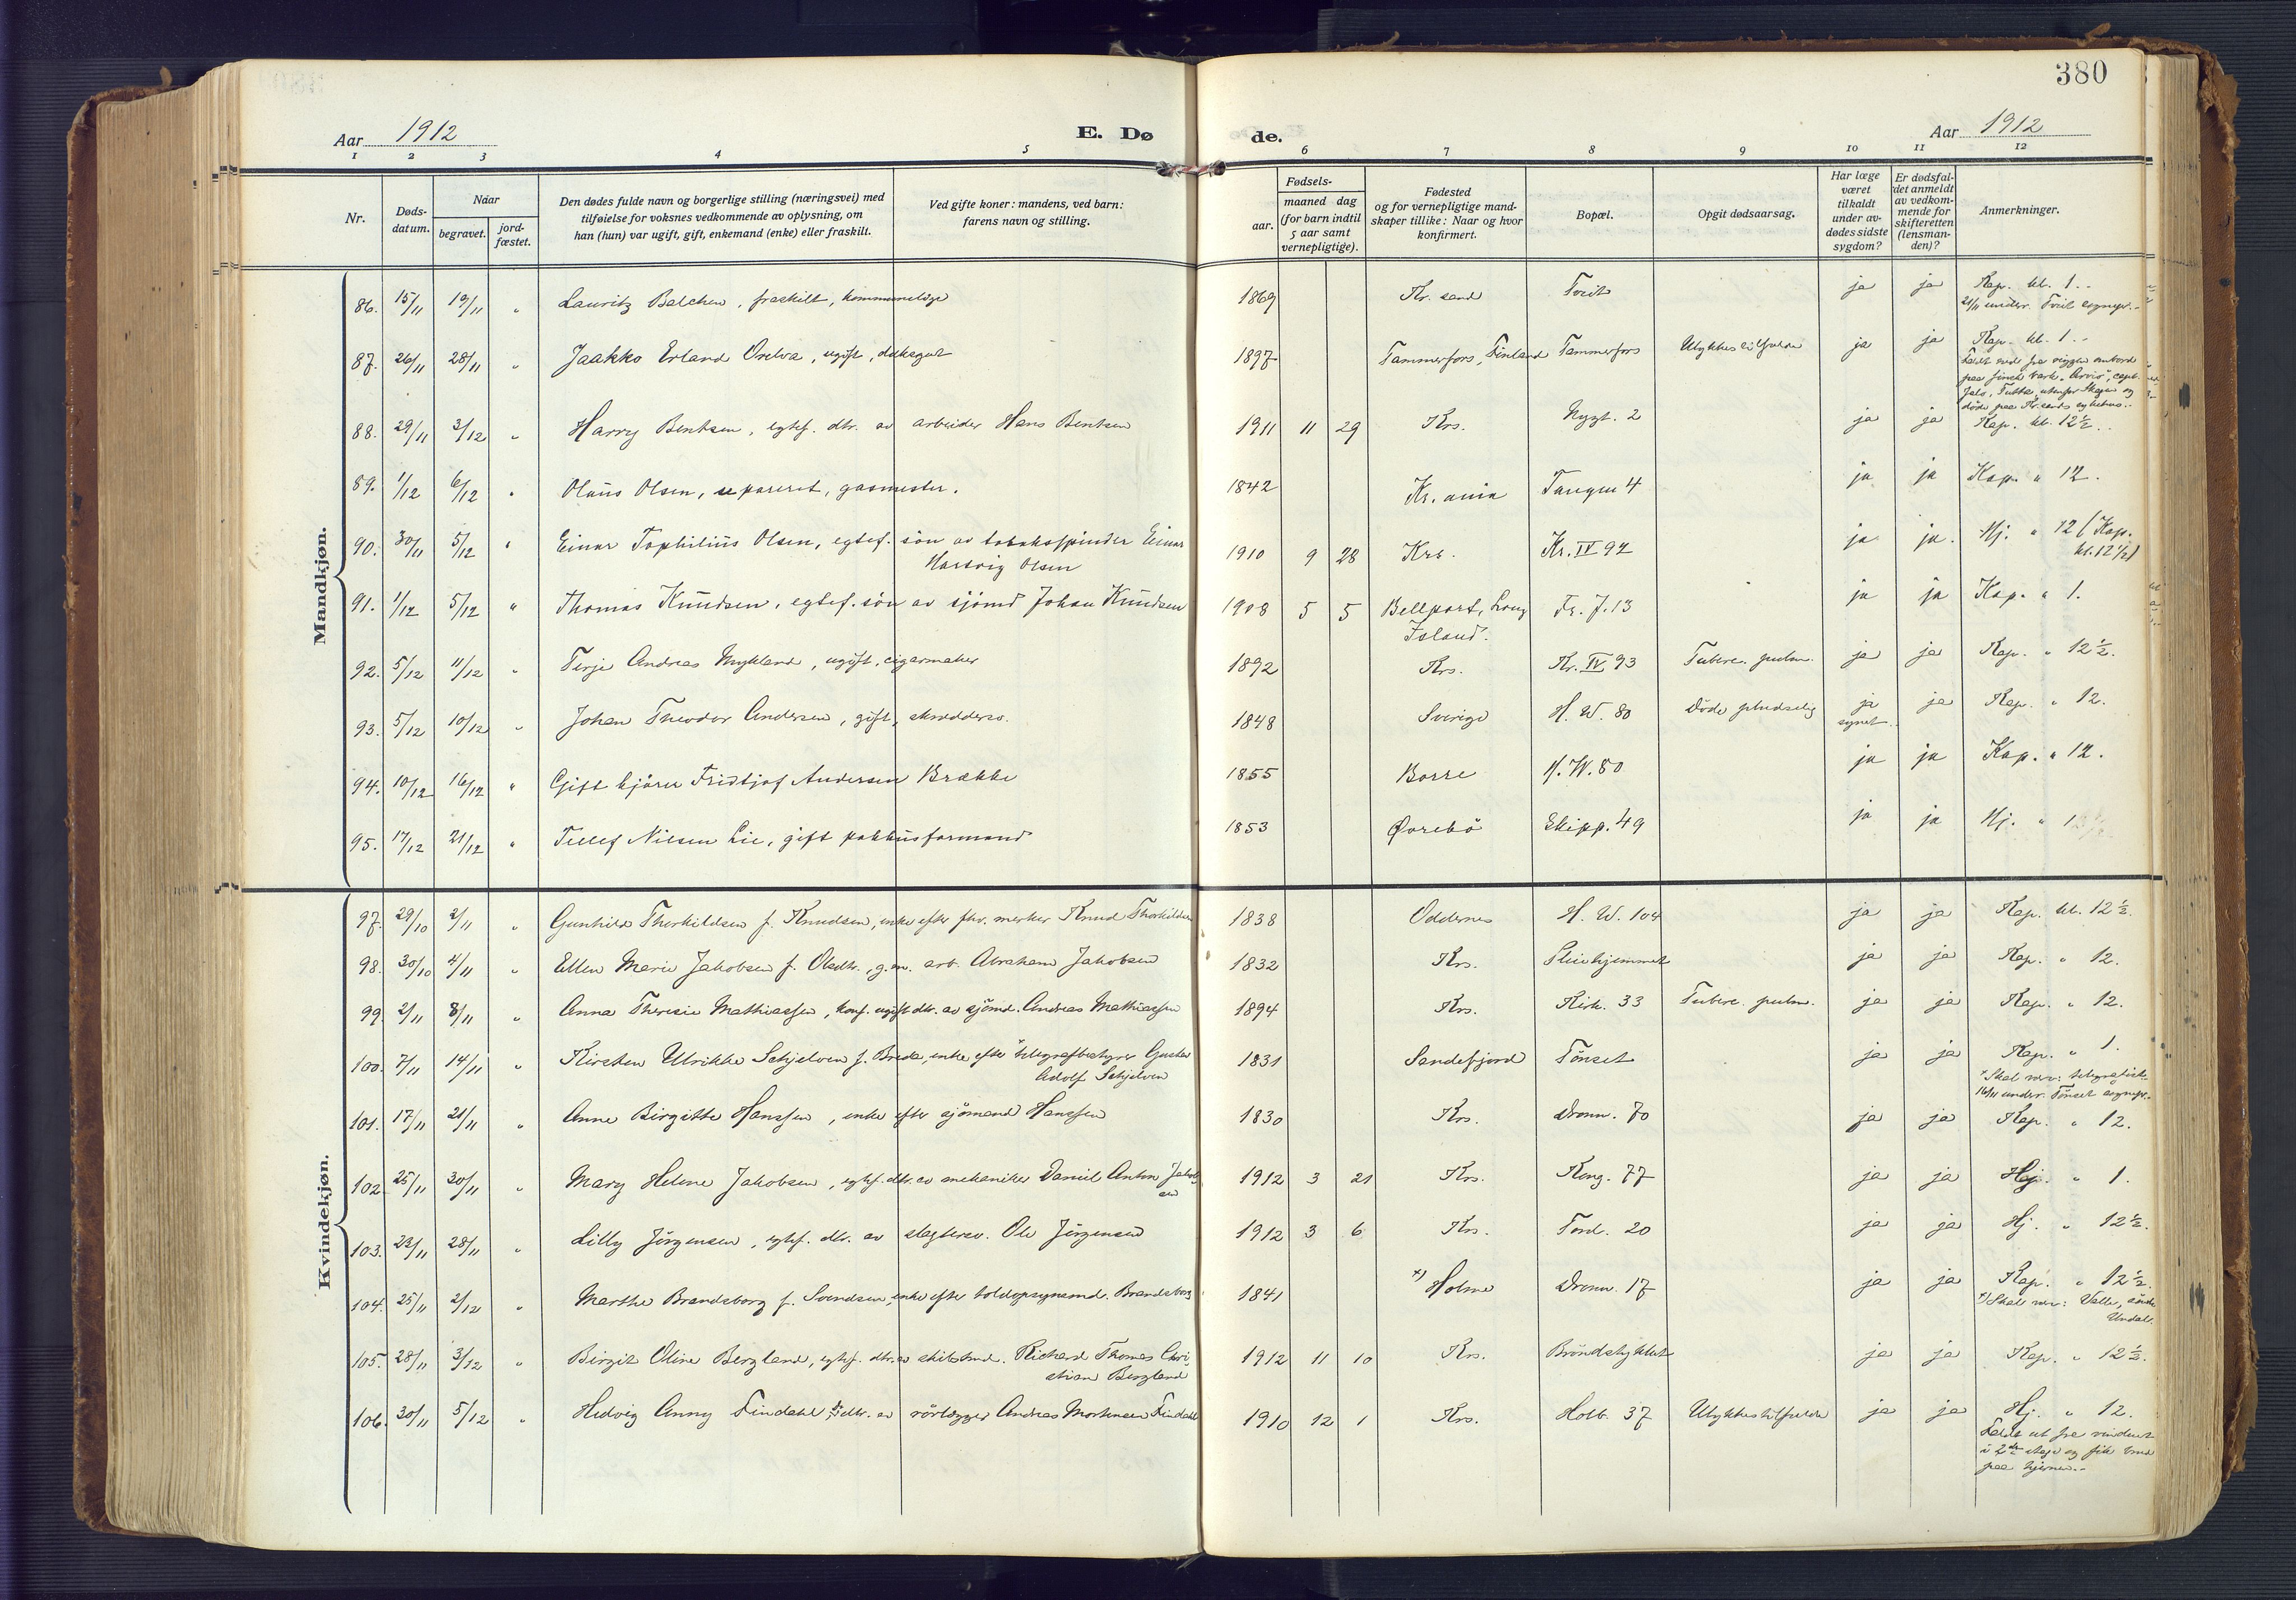 380
Aar 1912
E. Dø
de.
Aar 1912
1 2 3 4 5 6 7 8 9 10 11 12
Nr.
Døds-
datum.
Naar
begravet.
jord-
fæstet.
Den dødes fulde navn og borgerlige stilling (næringsvei) med
tilføielse for voksnes vedkommende av oplysning, om
han (hun) var ugift, gift, enkemand (enke) eller fraskilt.
Ved gifte koner: mandens, ved barn:
farens navn og stilling.
Fødsels-
aar.
maaned dag
(for barn indtil
5 aar samt
vernepligtige).
Fødested
og for vernepligtige mand-
skaper tillike: Naar og hvor
konfirmert.
Bopæl.
Opgit dødsaarsag.
Har læge
været
tilkaldt
under av-
dødes sidste
sygdom?
Er dødsfal-
det anmeldt
av vedkom-
mende for
skifteretten
(lensman-
den)?
Anmerkninger.
Mandkjøn.
86. 15/11 19/11 " Lauritz Balchen, fraskilt, kommunelæge 1869 Kr. sand Tveit ja ja Kap. kl. 1.
21/11 underr. Tveit sognepr.
87. 26/11 28/11 " Jaakko Erland Orelva, ugift, dæksgut 1897 Tammerfors, Finland Tammerfors Ulykkestilfælde ja ja Kap. kl. 1.
Faldt ned fra riggen ombord
paa finsk bark "Arvio", capt.
døde paa Kr.sands sykehus.
88. 29/11 3/12 " Harry Bentsen, egtef. dtr. av arbeider Hans Bentsen 1911 11 29 Krs. Nygt. 2 ja ja Kap. kl. 12½.
89. 1/12 6/12 " Olaus Olsen, separeret, gasmester. 1842 Kr. ania Tangen 4 ja ja Kap. " 12.
90. 30/11 5/12 " Einar Tophilius Olsen, egtef. søn av tobaksspinder Einar
Hartvig Olsen 1910 9 28 Krs. Kr. IV 92 ja ja. Hj. " 12 (Kap.
kl. 12½)
91. 1/12 5/12 " Thomas Knudsen, egtef. søn av sjømd Johan Knudsen 1908 5 5 Bellport, Long
Island. Fr. J. 13 ja ja Kap. " 1.
92. 5/12 11/12 " Terje Andreas Mykland, ugift, cigarmaker 1892 Krs. Kr. IV 93 Tuberc. pulm. ja ja Kap. " 12½.
93. 5/12 10/12 " Johan Theodor Andersen, gift, skræddersv. 1848 Sverige H. W. 80 Døde pludselig ja
synet. ja Kap. " 12.
94. 10/12 16/12 " Gift kjører Fridtjof Andersen Brække 1855 Borre H. W. 80 ja ja Kap. " 12.
95. 17/12 21/12 " Tellef Nilsen Lie, gift pakhusformand 1853 Øvrebø Skipp. 49 ja ja Hj. " 1
Kvindekjøn.
97. 29/10 2/11 " Gunhild Thorkildsen f. Knudsen, enke efter fhv. merker Knud Thorkildsen 1838 Oddernes H. W. 104 ja ja Kap. kl. 12½.
98. 30/10 4/11 " Ellen Marie Jakobsen f. Olsdtr., g.m. arb. Abraham Jakobsen 1832 Krs. Pleiehjemmet ja ja Kap. " 12.
99. 2/11 8/11 " Anna Theresie Mathiassen, konf. ugift dtr. av sjømd. Andreas Mathiassen 1894 Krs. Kirk. 33 Tuberc. pulm. ja ja Kap. " 12.
100. 7/11 14/11 " Kirsten Ulrikke Schjelven f. Breda, enke efter telegrafbestyrer Gustav
Adolf Schjelven 1831 Sandefjord Tønset ja ja Kap. " 1.
16/11 underr. Tønset sognepr.
101. 17/11 21/11 " Anne Birgitte Hanssen, enke efter sjømand Hanssen 1830 Krs. Dronn. 70 ja ja Kap. " 12.
102. 25/11 30/11 " Mary Helene Jakobsen, egtef. dtr. av mekaniker Daniel Anton Jakob-
sen 1912 3 21 Krs. Kong. 77 ja ja Hj. " 1.
103. 23/11 28/11 " Lilly Jørgensen, egtef. dtr. av slagtersv. Ole Jørgensen 1912 3 6 Krs. Tord. 20 ja ja Hj. " 12½.
104. 25/11 2/12 " Marthe Brandsborg f. Svendsen, enke efter toldopsynsmd. Brandsborg 1841 x) Holme Dronn. 17 ja ja Kap. " 12½.
x) Skal være: Valle, søndre
Undal.
105. 28/11 3/12 " Birgit Oline Bergland, egtef. dtr. av skibstmd. Richard Thomas Chri-
stian Bergland 1912 11 10 Krs. Brøndstykket ja ja Kap. " 12½.
106. 30/11 5/12 " Hedvig Anny Findahl, dtr. av rørlægger Andreas Mortensen Findahl 1910 12 1 Krs. Holb. 37 Ulykkestilfælde ja ja Hj. " 12.
Faldt ut fra vinduet
i 2den etage og fik brud
paa hjernen.